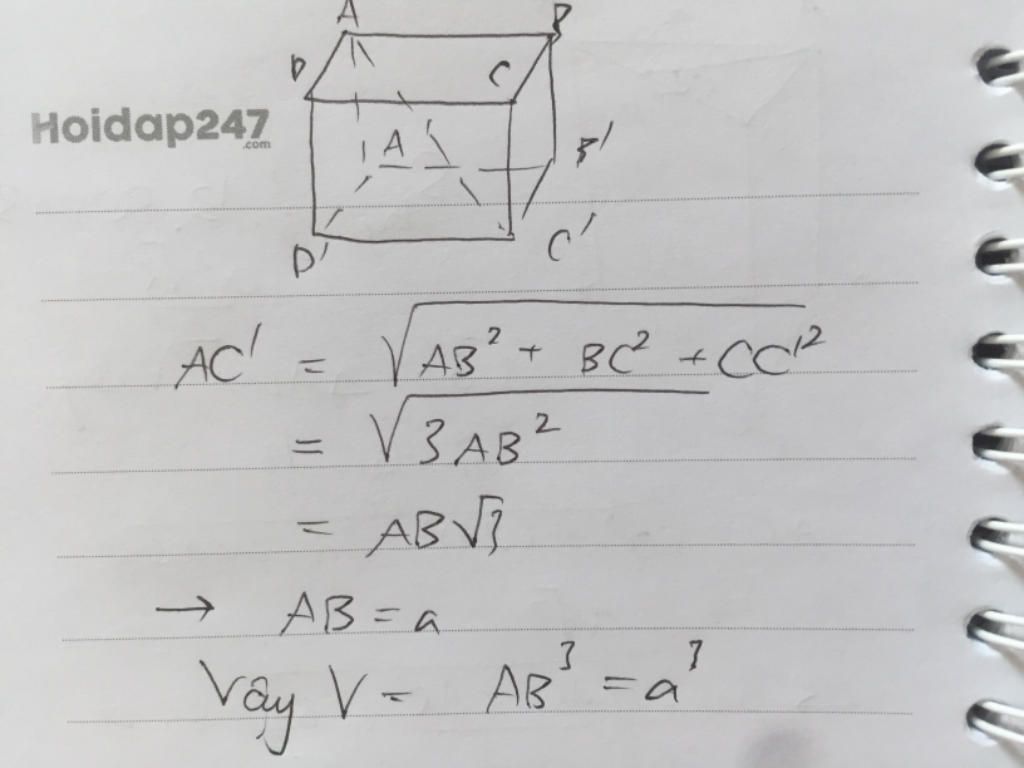 A B
D C
Hoidap247
.com
A' B'
D' C'
AC' = √AB² + BC² + CC'²
= √3AB²
= AB√3
→ AB = a
Vậy V = AB³ = a³